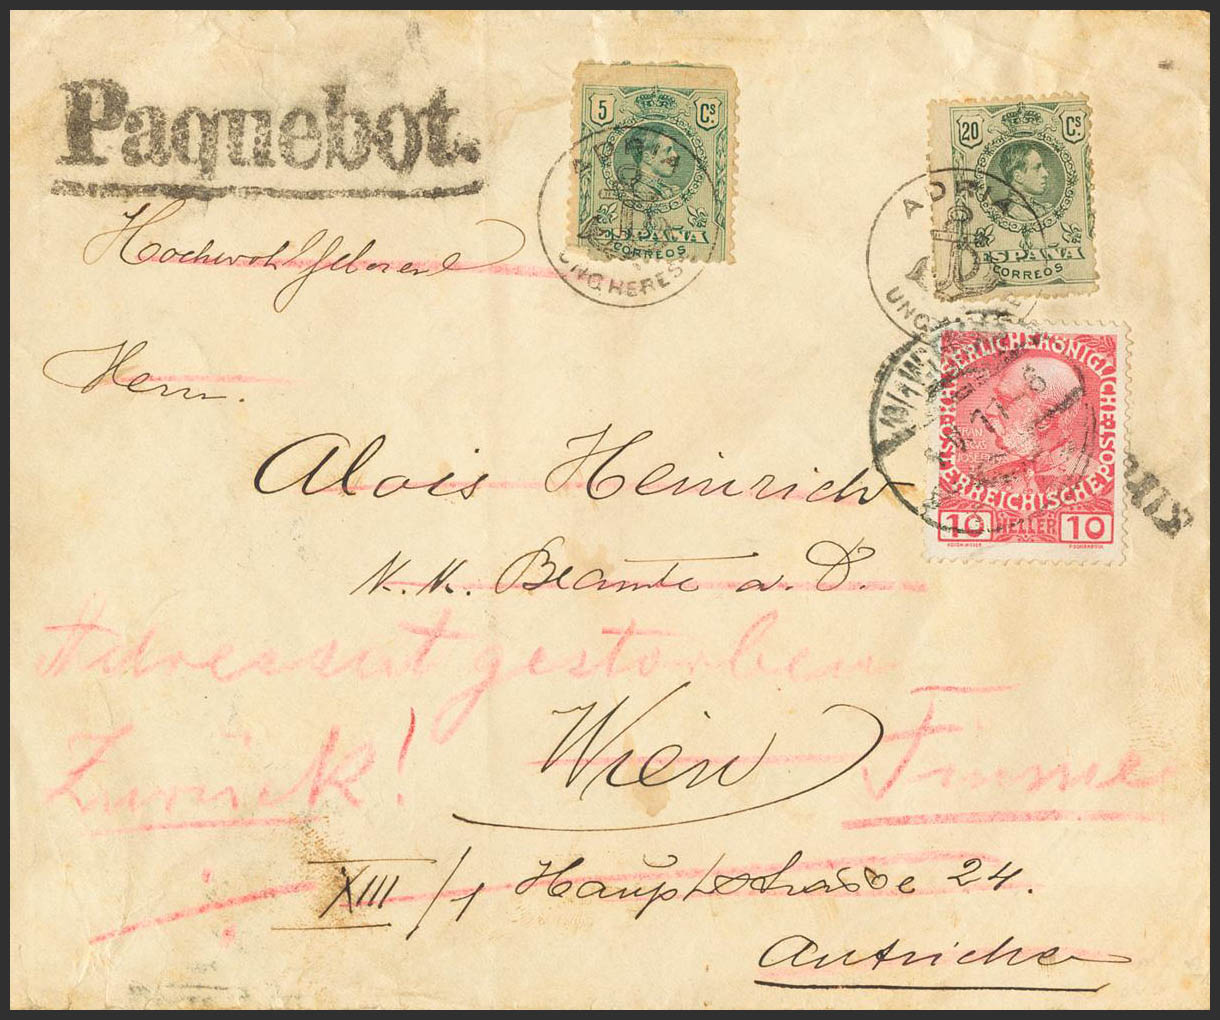 Paquebot.
5 Cs
ESPAÑA
CORREOS
ADRIA
UNGHERES
20 Cs
ESPAÑA
CORREOS
ADRIA
Hochwohlgeboren
Herrn.
KAISERLICHE KÖNIGLICHE
ÖSTERREICHISCHE POST
FRANZ
JOSEPH
10 HELLER 10
Alois Heinrich
K. K. Beamte a. D.
Adressat gestorben
Zurück!
Fiume
Wien
XIII/1 Hauptstrasse 24.
Autriche